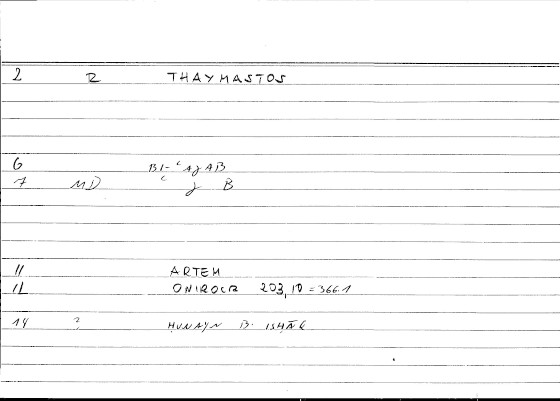 2 R THAYMASTOS
6 BI-ʿAǧAB
7 MD ʿ ǧ B
11 ARTEM
12 ONIROCR 203,10 = 366.1
14 ? ḤUNAYN B. ISḤĀQ